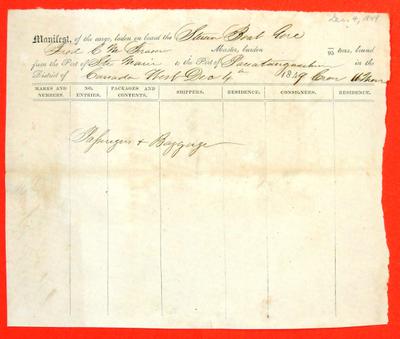 Dec. 4, 1849
Manifest, of the cargo, laden on board the Steam Boat Gore
Fred C McKenzie Master, burden 95 tons, bound
from the Port of Ste Marie to the Port of in the
District of Cannada West Dec 4th 1849
MARKS AND NUMBERS. NO. ENTRIES. PACKAGES AND CONTENTS. SHIPPERS. RESIDENCE. CONSIGNEES. RESIDENCE.
Passengers & Baggage